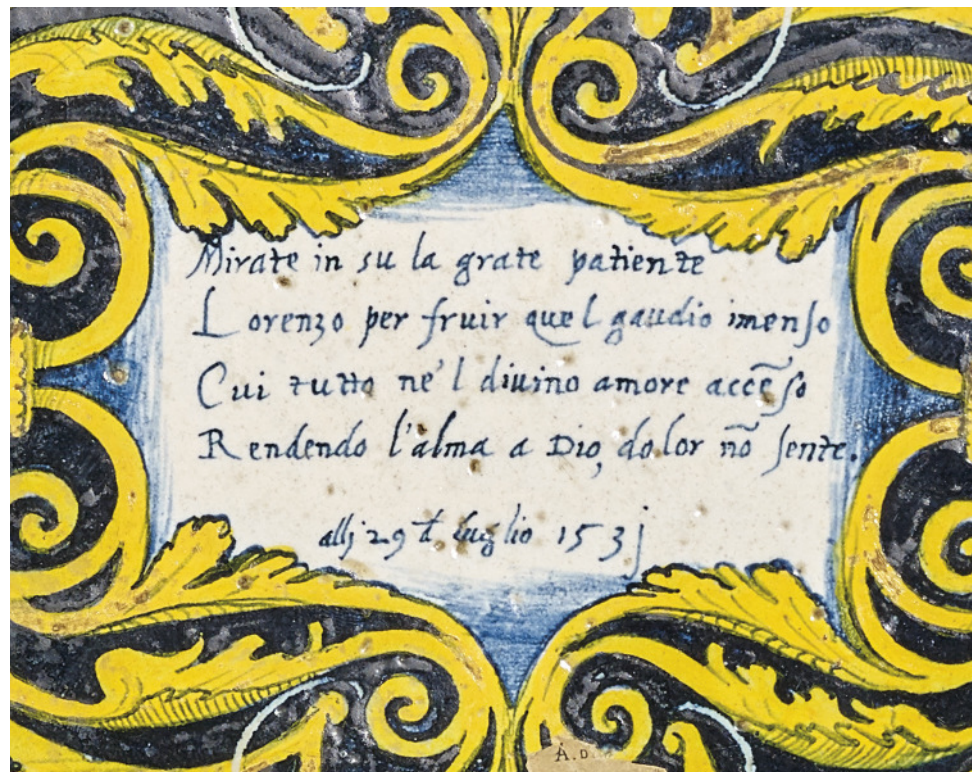 Mirate in su la grate patiente
Lorenzo per fruir quel gaudio imenſo
Cui tutto ne'l diuino amore accẽſo
Rendendo l'alma a Dio, dolor nõ ſente.
allj 29 d luglio 153j
A.D.